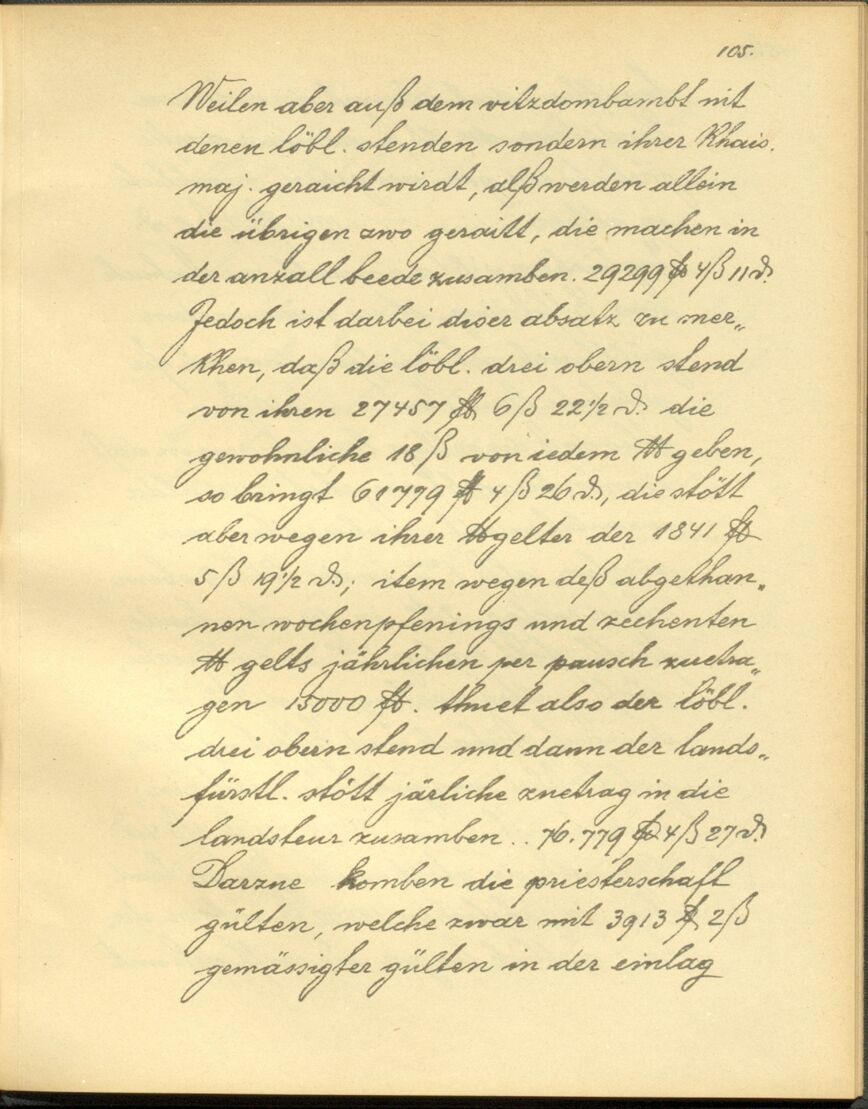 105.
Weilen aber auß dem vitzdombambt nit
denen löbl. stenden sondern ihrer Khais.
maj. geraicht wirdt, alß werden allein
die übrigen zwo geraitt, die machen in
der anzall beede zusamben. 29299 ℔ 4 ß 11 ₰.
Jedoch ist darbei diser absatz zu mer„
khen, daß die löbl. drei obern stend
von ihren 27457 ℔ 6 ß 22 1/2 ₰. die
gewohnliche 18 ß von iedem ℔ geben,
so bringt 61779 ℔ 4 ß 26 ₰., die stött
aber wegen ihrer ℔gelter der 1841 ℔
5 ß 19 1/2 ₰.; item wegen deß abgethan„
nen wochenpfenings und zechenten
℔ gelts jährlichen per pausch zuetra„
gen 15000 ℔. thuet also der löbl.
drei obern stend und dann der lands„
fürstl. stött järliche zuetrag in die
landsteur zusamben .. 76.779 ℔ 4 ß 27 ₰.
Darzue komben die priesterschaft
gülten, welche zwar mit 3913 ℔ 2 ß
gemässigter gülten in der einlag